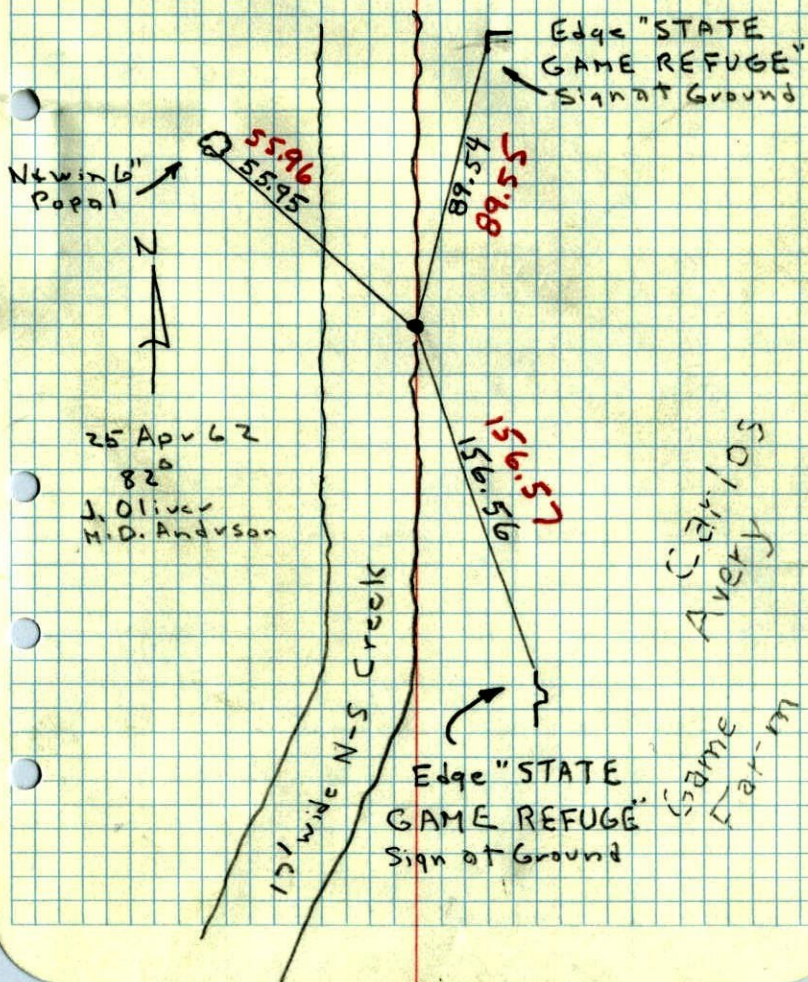 Edge "STATE
GAME REFUGE"
Sign at Ground
55.96
55.95
in 6"
Popal
89.54
89.55
N
25 Apr 62
82°
J. Oliver
H.D. Andrson
156.57
156.56
Carlos
Avery
Game
Farm
17' wide N-S Creek
Edge "STATE
GAME REFUGE"
Sign at Ground